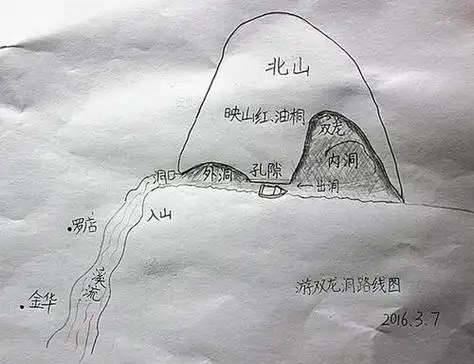 北山
映山红、油桐
双龙
内洞
洞口
外洞
孔隙
←出洞
入山
罗店
溪流
金华
游双龙洞路线图
2016.3.7